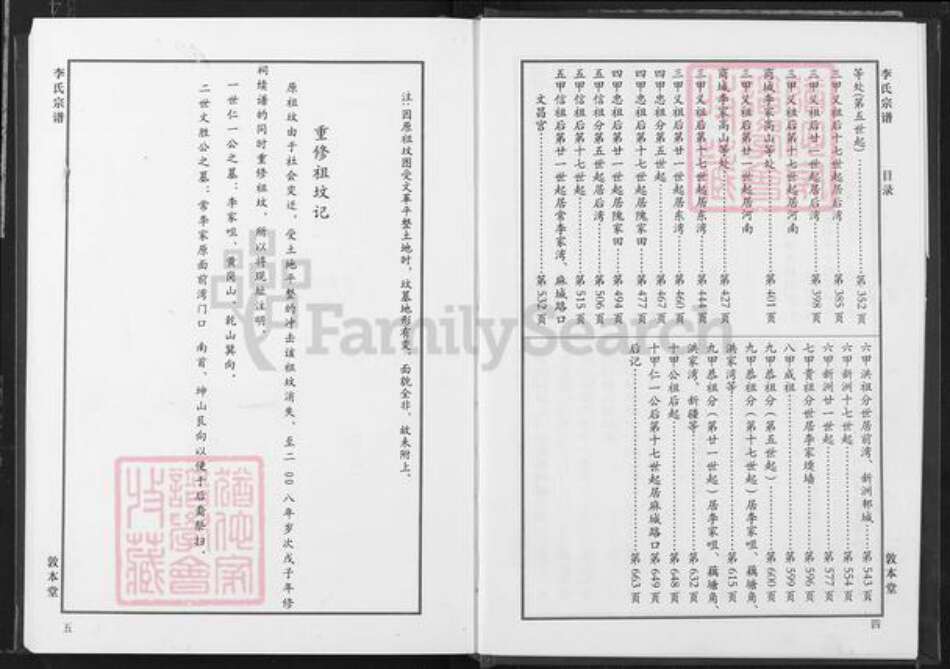 李氏宗谱
目录
等处(第五世起)……第352页
三甲又祖后十七世起居后湾……第385页
三甲又祖后廿一世起居后湾……第398页
三甲又祖后第十七世起居河南
商城李家高山等处……第401页
三甲又祖后第廿一世起居河南
商城李家高山等处……第427页
三甲又祖后第十七世起居东湾……第444页
三甲又祖后第廿一世起居东湾……第460页
四甲忠祖分第五世起……第467页
四甲忠祖后第十七世起居隗家田……第477页
四甲忠祖后第廿一世起居隗家田……第494页
五甲信祖分第五世起居后湾……第506页
五甲信祖后第十七世起……第515页
五甲信祖后第廿一世起居常李家湾、麻城路口
文昌宫……第532页
六甲洪祖分世居前湾、新洲邾城……第543页
六甲新洲十七世起……第554页
六甲新洲廿一世起……第577页
七甲贵祖分世居李家塆墙……第596页
八甲成祖……第599页
九甲恭祖分(第五世起)……第600页
九甲恭祖分(第十七世起)居李家咀、藕塘角、
洪家湾等……第615页
九甲恭祖分(第廿一世起)居李家咀、藕塘角、
洪家湾、新疆等……第632页
十甲公祖后起……第648页
十甲仁一公后第十七世起居麻城路口第649页
后记……第663页
敦本堂
四
注:因原祖坟图受文革平整土地时,坟墓地形有变、面貌全非,故未附上。
重修祖坟记
原祖坟由于社会变迁,受土地平整的冲击该祖坟消失,至二00八年岁次戊子年修
祠续谱的同时重修祖坟,所以将现址注明。
一世仁一公之墓:李家咀、黄岗山、乾山巽向。
二世文胜公之墓:常李家原面前湾门口 南首、坤山艮向以便于后裔祭扫。
李氏宗谱
敦本堂
五
FamilySearch